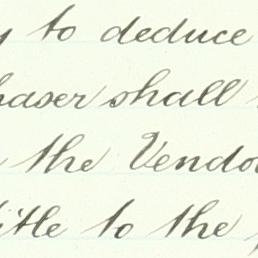 y to deduce
haser shall
the Vendo
itle to the